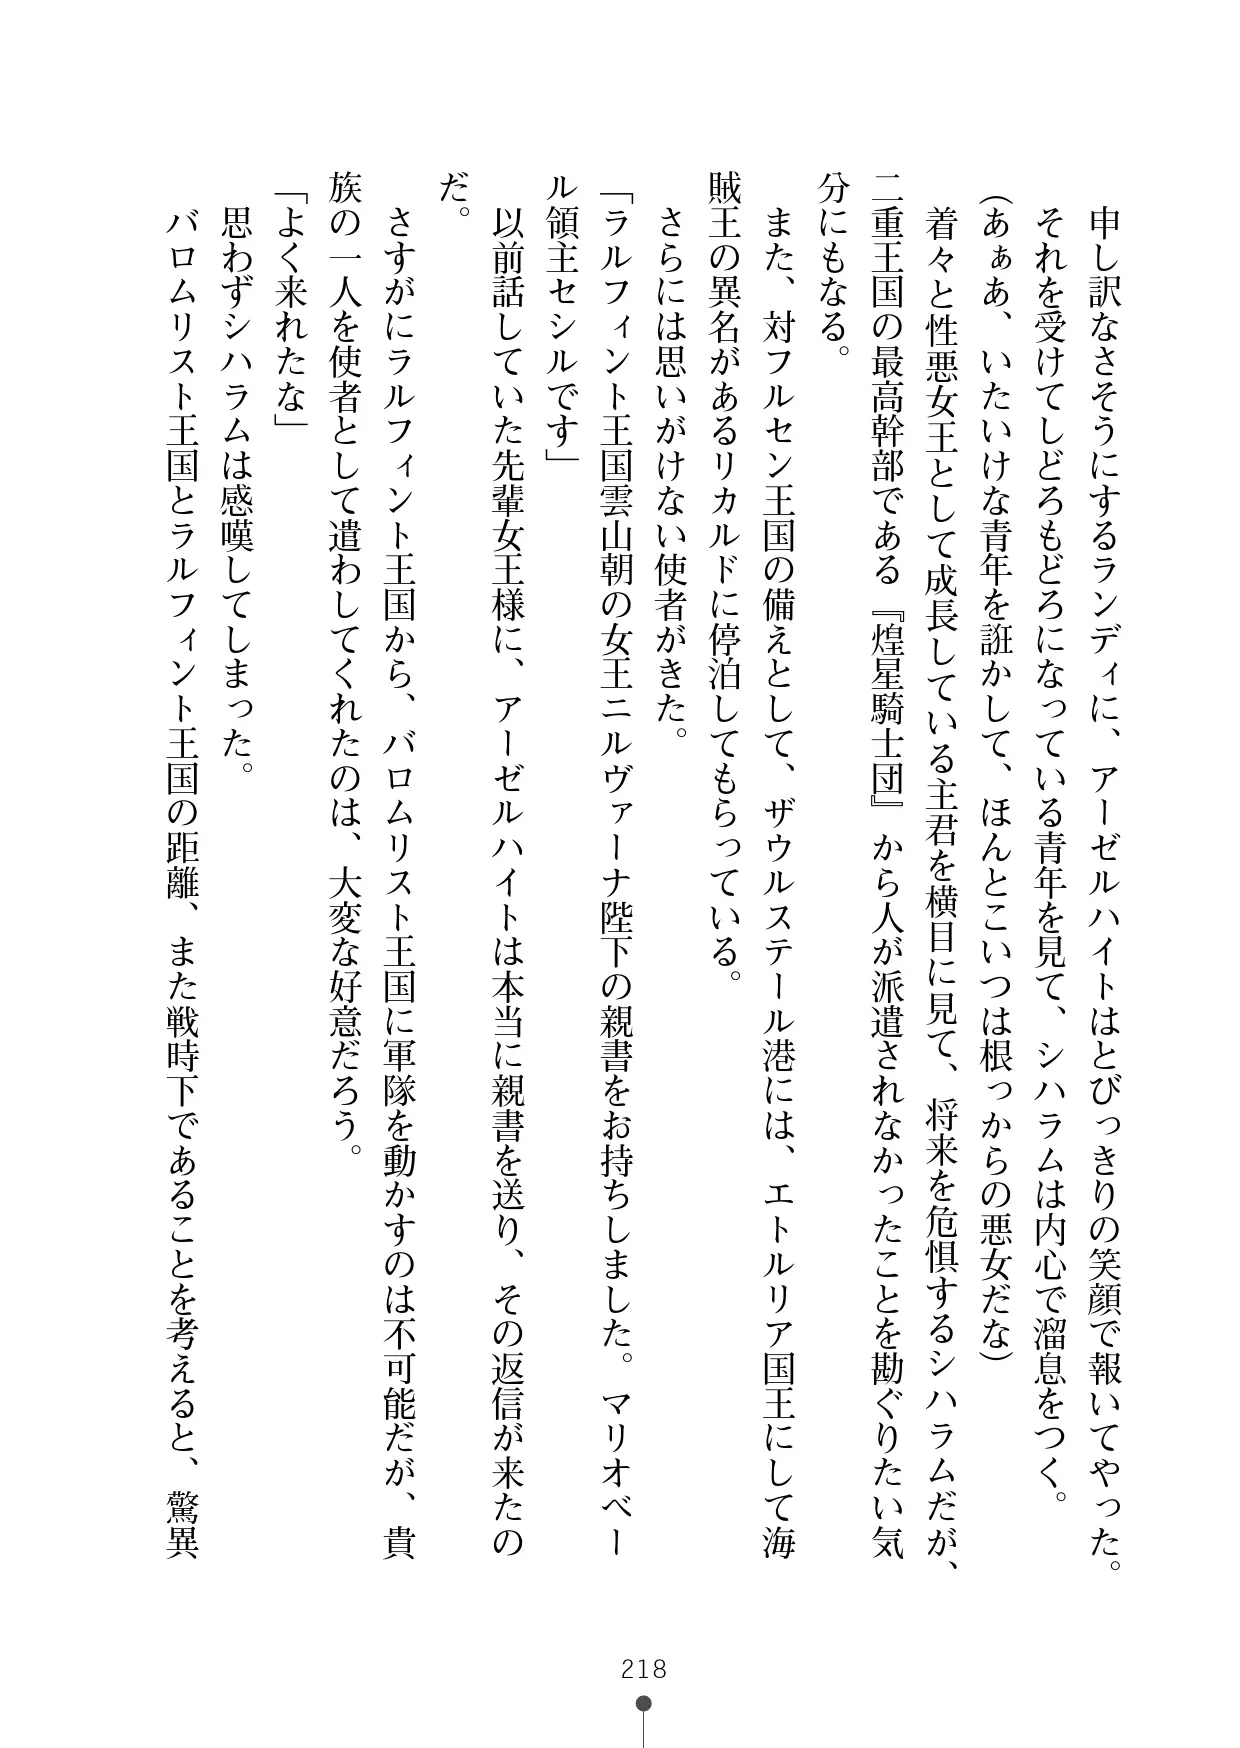 申し訳なさそうにするランディに、アーゼルハイトはとびっきりの笑顔で報いてやった。
　それを受けてしどろもどろになっている青年を見て、シハラムは内心で溜息をつく。
（あぁあ、いたいけな青年を誑かして、ほんとこいつは根っからの悪女だな）
　着々と性悪女王として成長している主君を横目に見て、将来を危惧するシハラムだが、
二重王国の最高幹部である『煌星騎士団』から人が派遣されなかったことを勘ぐりたい気
分にもなる。
　また、対フルセン王国の備えとして、ザウルステール港には、エトルリア国王にして海
賊王の異名があるリカルドに停泊してもらっている。
　さらには思いがけない使者がきた。
「ラルフィント王国雲山朝の女王ニルヴァーナ陛下の親書をお持ちしました。マリオベー
ル領主セシルです」
　以前話していた先輩女王様に、アーゼルハイトは本当に親書を送り、その返信が来たの
だ。
　さすがにラルフィント王国から、バロムリスト王国に軍隊を動かすのは不可能だが、貴
族の一人を使者として遣わしてくれたのは、大変な好意だろう。
「よく来れたな」
　思わずシハラムは感嘆してしまった。
　バロムリスト王国とラルフィント王国の距離、また戦時下であることを考えると、驚異
218